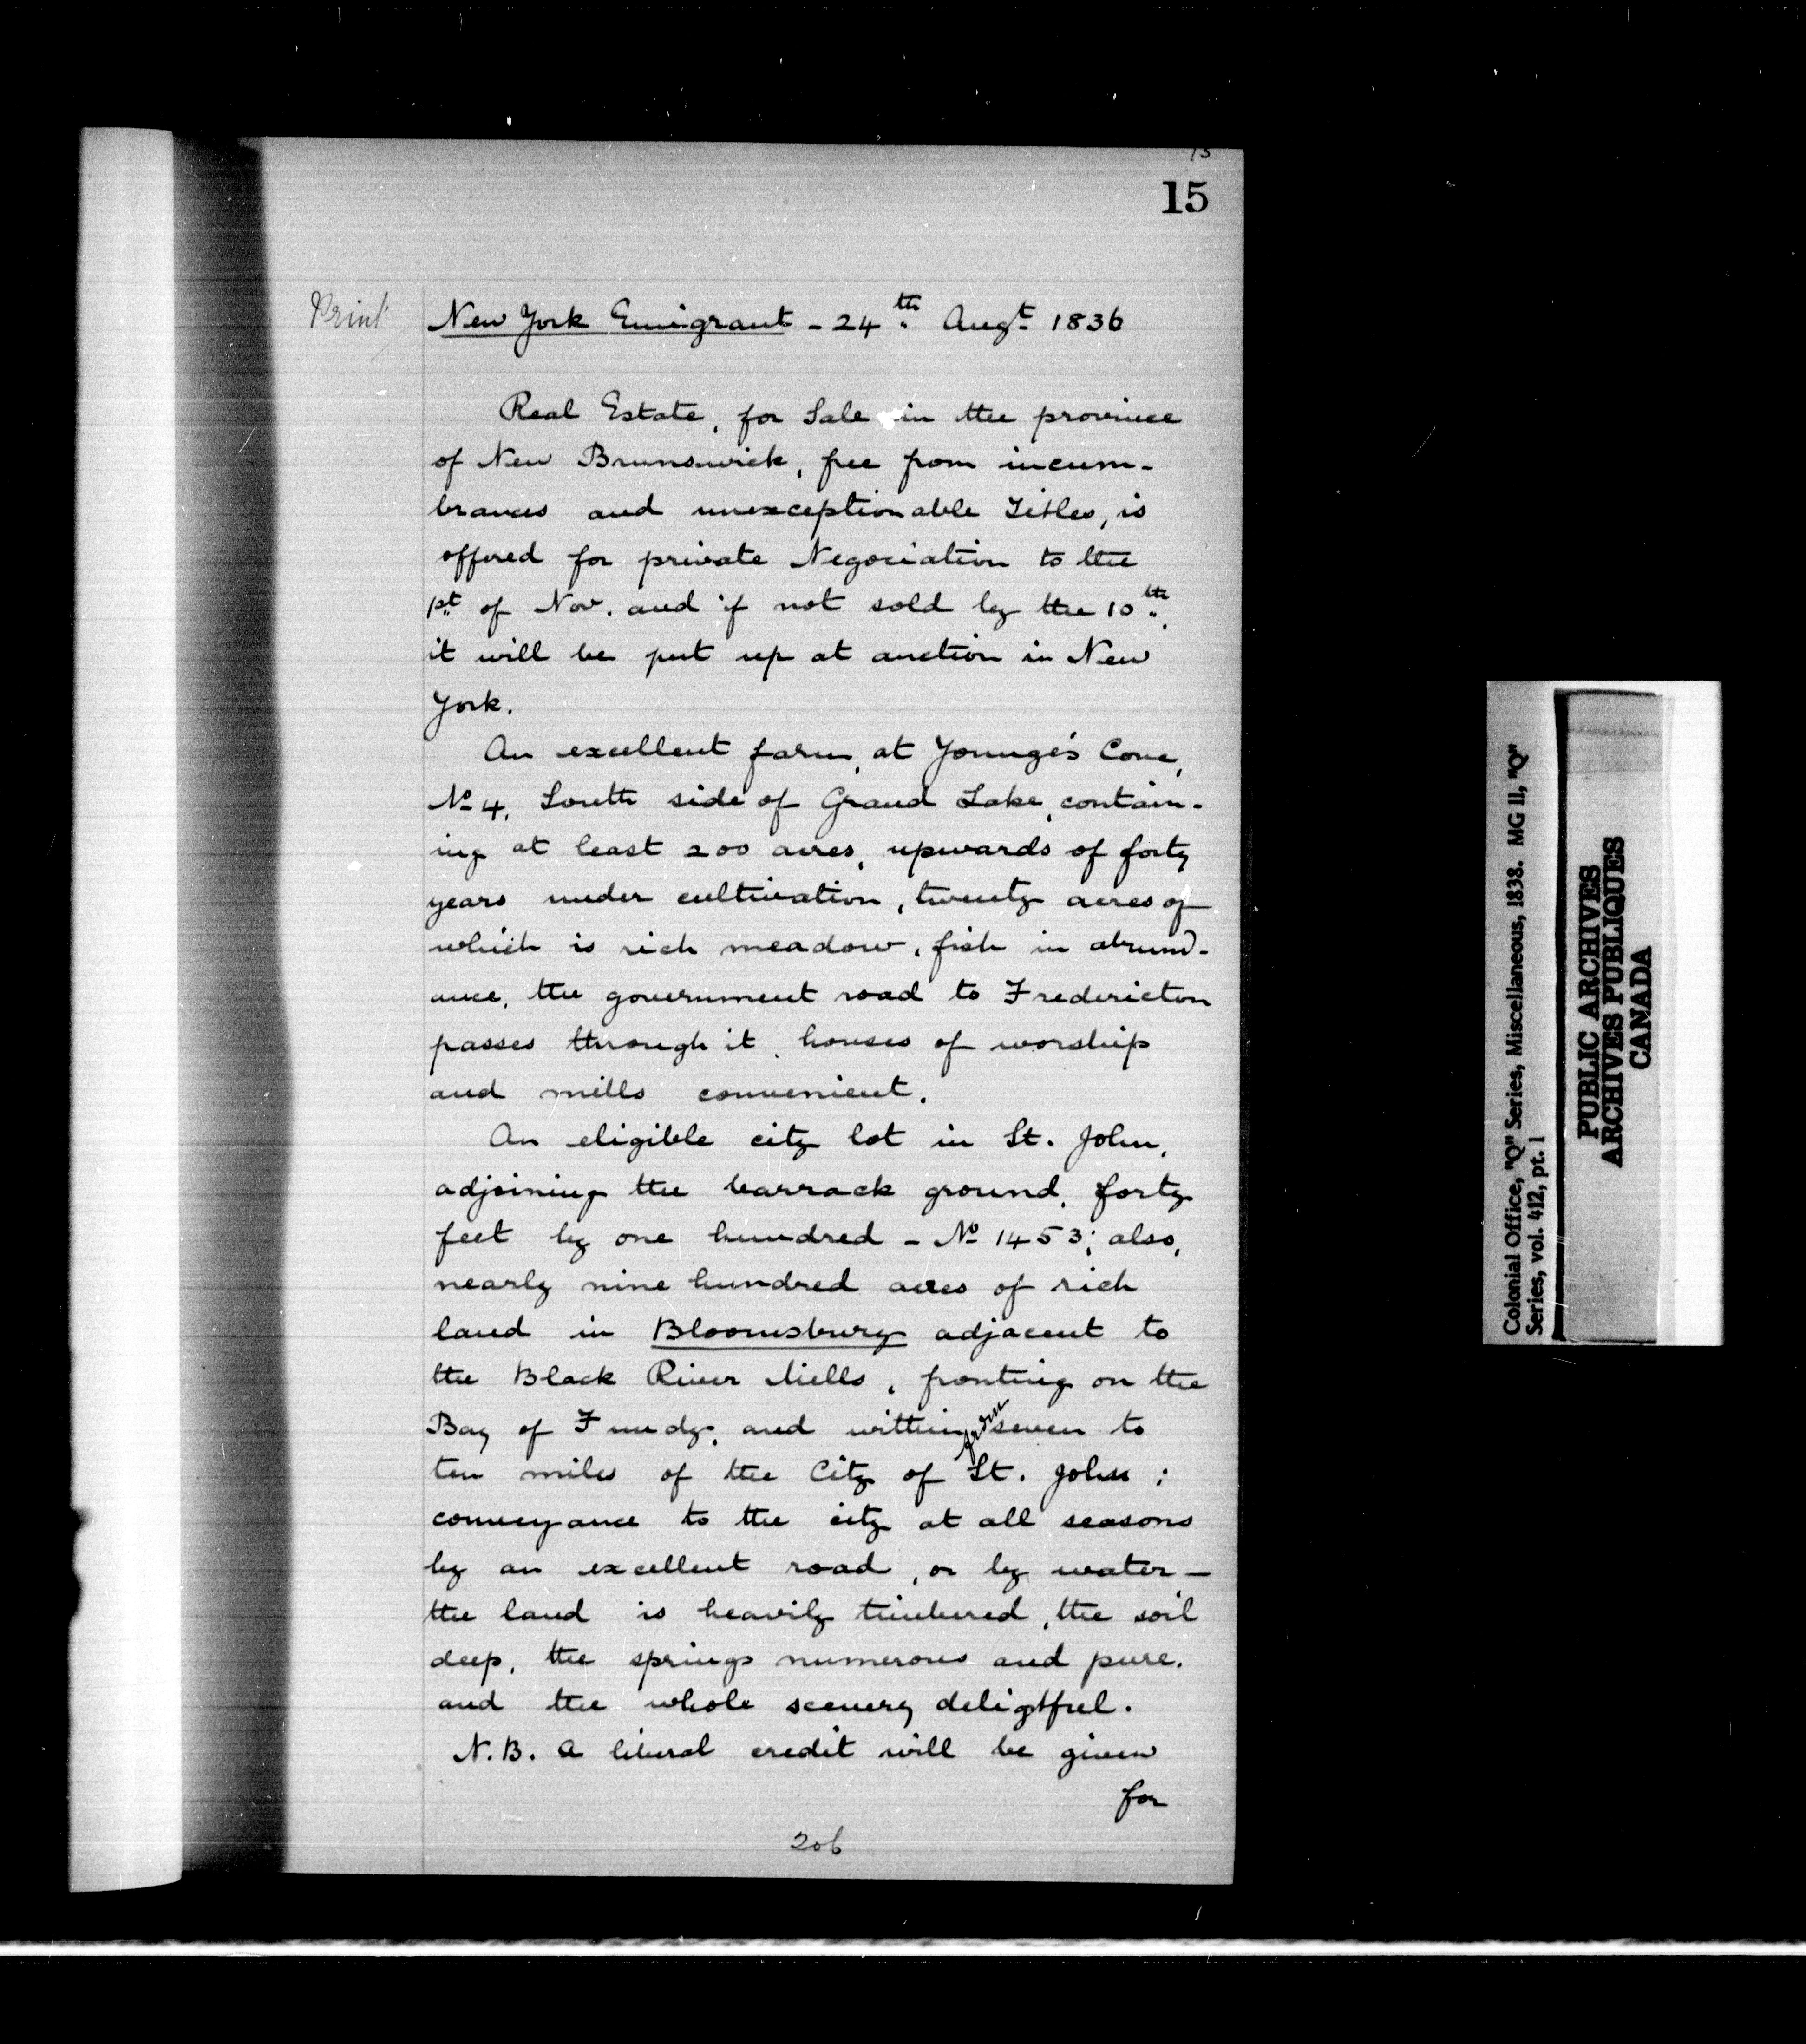 13
15
Print
New York Emigrant - 24th Augt 1836
Real Estate, for Sale in the province
of New Brunswick, free from incum-
brances and unexceptionable Titles, is
offered for private Negociation to the
1st of Nov. and if not sold by the 10th,
it will be put up at auction in New
York.
An excellent farm, at Younge's Cove,
No 4, South side of Grand Lake, contain-
ing at least 200 acres, upwards of forty
years under cultivation, twenty acres of
which is rich meadow, fish in abund-
ance, the government road to Fredericton
passes through it, houses of worship
and mills convenient.
An eligible city lot in St. John,
adjoining the barrack ground, forty
feet by one hundred - No 1453; also,
nearly nine hundred acres of rich
land in Bloomsbury adjacent to
the Black River Mills, fronting on the
Bay of Fundy, and within from seven to
ten miles of the City of St. John;
conveyance to the city at all seasons
by an excellent road, or by water -
the land is heavily timbered, the soil
deep, the springs numerous and pure,
and the whole scenery deligtful.
N.B. A liberal credit will be given
for
206
Colonial Office, "Q" Series, Miscellaneous, 1838. MG 11, "Q"
Series, vol. 412, pt. 1
PUBLIC ARCHIVES
ARCHIVES PUBLIQUES
CANADA